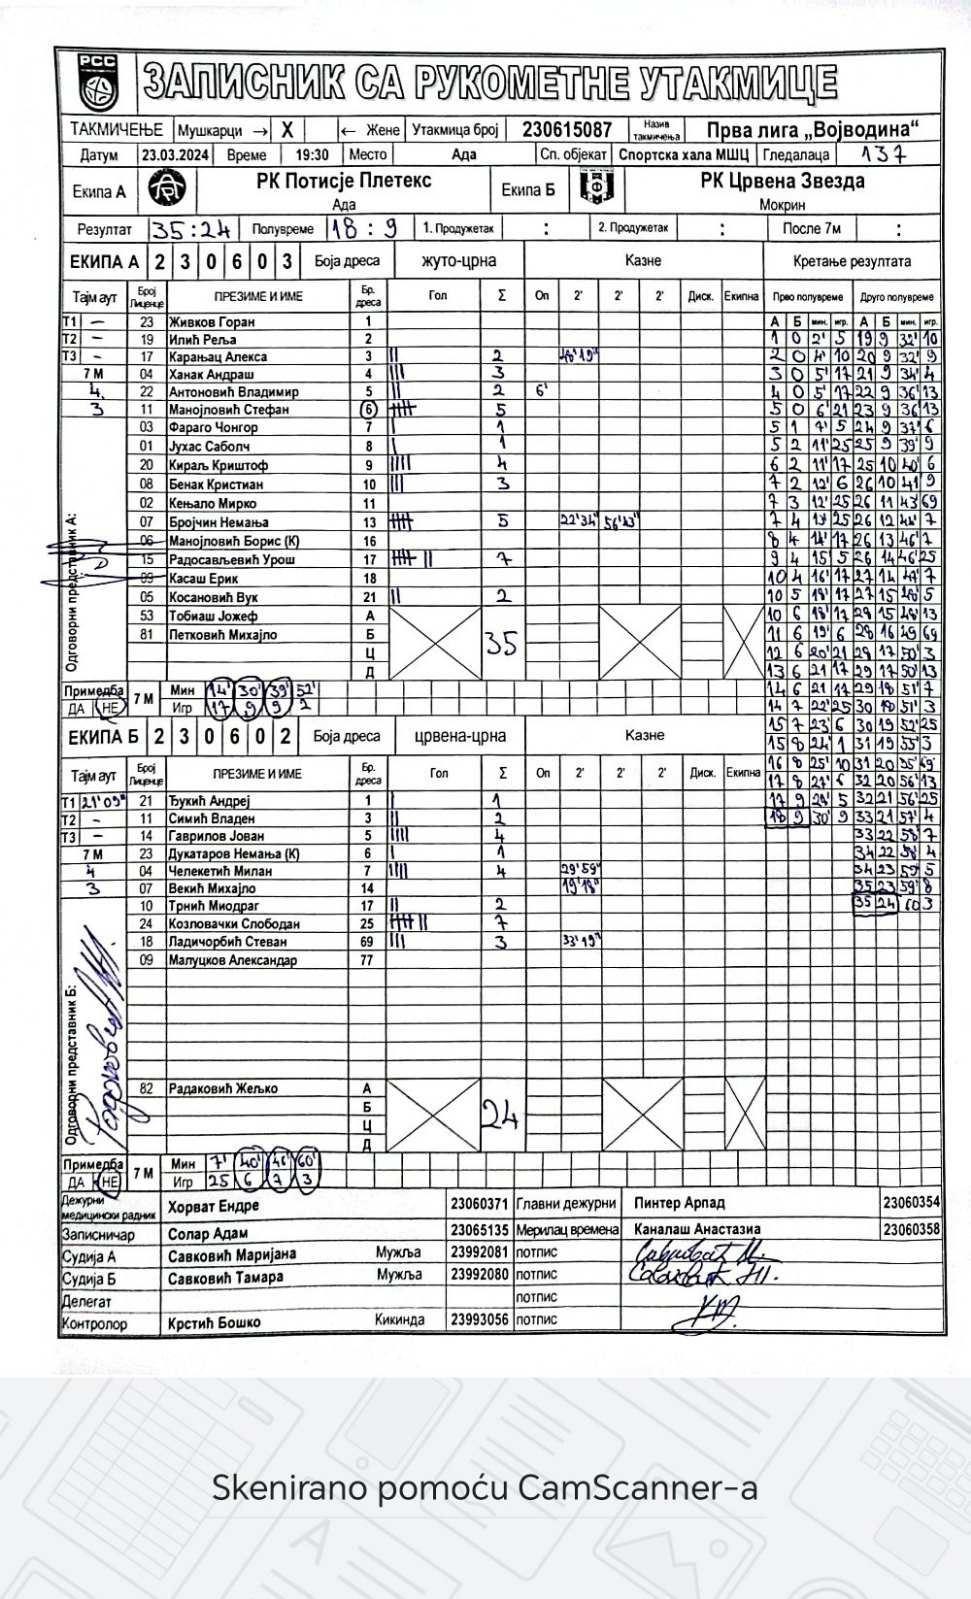 РСС
ЗАПИСНИК СА РУКОМЕТНЕ УТАКМИЦЕ
ТАКМИЧЕЊЕ Мушкарци → X ← Жене Утакмица број 230615087 Назив такмичења Прва лига „Војводина“
Датум 23.03.2024 Време 19:30 Место Ада Сп. објекат Спортска хала МШЦ Гледалаца 137
Екипа А РК Потисје Плетекс Ада Екипа Б РК Црвена Звезда Мокрин
Резултат 35:24 Полувреме 18:9 1. Продужетак : 2. Продужетак : После 7м :
ЕКИПА А 2 3 0 6 0 3 Боја дреса жуто-црна Казне Кретање резултата
Тајм аут Број Лиценце ПРЕЗИМЕ И ИМЕ Бр. дреса Гол Σ Оп 2' 2' 2' Диск. Екипна Прво полувреме Друго полувреме
А Б мин. игр. А Б мин. игр.
Т1 – 23 Живков Горан 1
Т2 – 19 Илић Реља 2 1 0 2' 5 19 9 32' 10
Т3 – 17 Карањац Алекса 3 || 2 2 0 4' 10 20 9 32' 9
7 М 04 Ханак Андраш 4 ||| 3 3 0 5' 17 21 9 34' 4
4. 22 Антоновић Владимир 5 || 2 6' 4 0 5' 17 22 9 36' 13
3 11 Манојловић Стефан 6 5 5 0 6' 21 23 9 36' 13
03 Фараго Чонгор 7 | 1 5 1 7' 5 24 9 37' 6
01 Јухас Саболч 8 | 1 5 2 11' 25 25 9 39' 9
20 Кираљ Криштоф 9 |||| 4 6 2 11' 17 25 10 40' 6
08 Бенак Кристиан 10 ||| 3 7 2 12' 6 26 10 41' 9
02 Кењало Мирко 11 7 3 12' 25 26 11 43 69
07 Бројчин Немања 13 5 22'34" 56'43" 7 4 13' 25 26 12 44' 7
06 Манојловић Борис (К) 16 8 4 14' 17 26 13 46' 7
15 Радосављевић Урош 17 7 9 4 15' 5 26 14 46' 25
09 Касаш Ерик 18 10 4 16' 17 27 14 47' 7
05 Косановић Вук 21 || 2 10 5 18' 17 27 15 48' 5
53 Тобиаш Јожеф А 10 6 18' 17 28 15 48' 13
81 Петковић Михајло Б 35 11 6 19' 6 28 16 49 69
Ц 12 6 20' 21 29 17 50' 3
Д 13 6 21 17 29 17 50' 13
Одговорни представник А:
Примедба ДА НЕ 7 М Мин 14' 30' 39' 52' 14 6 21 17 29 18 51' 7
Игр 17 9 9 2 14 7 22' 25 30 18 51' 3
ЕКИПА Б 2 3 0 6 0 2 Боја дреса црвена-црна Казне 15 7 23' 6 30 19 52' 25
15 8 24' 1 31 19 55' 3
Тајм аут Број Лиценце ПРЕЗИМЕ И ИМЕ Бр. дреса Гол Σ Оп 2' 2' 2' Диск. Екипна 16 8 25' 10 31 20 55' 69
17 8 27' 6 32 20 56' 13
Т1 21'09" 21 Ђукић Андреј 1 | 1 17 9 29' 5 32 21 56' 25
Т2 – 11 Симић Владен 3 || 2 18 9 30' 9 33 21 57' 4
Т3 – 14 Гаврилов Јован 5 |||| 4 33 22 58' 7
7 М 23 Дукатаров Немања (К) 6 | 1 34 22 58' 4
4 04 Челекетић Милан 7 |||| 4 29'59" 34 23 59' 5
3 07 Векић Михајло 14 19'18" 35 23 59' 8
10 Трнић Миодраг 17 || 2 35 24 60 3
24 Козловачки Слободан 25 7
18 Ладичорбић Стеван 69 ||| 3 33'19"
09 Малуцков Александар 77
Одговорни представник Б:
82 Радаковић Жељко А
Б 24
Ц
Д
Примедба ДА НЕ 7 М Мин 7' 40' 46' 60'
Игр 25 6 7 3
Дежурни медицински радник Хорват Ендре 23060371 Главни дежурни Пинтер Арпад 23060354
Записничар Солар Адам 23065135 Мерилац времена Каналаш Анастазиа 23060358
Судија А Савковић Маријана Мужља 23992081 потпис
Судија Б Савковић Тамара Мужља 23992080 потпис
Делегат потпис
Контролор Крстић Бошко Кикинда 23993056 потпис
Skenirano pomoću CamScanner-a